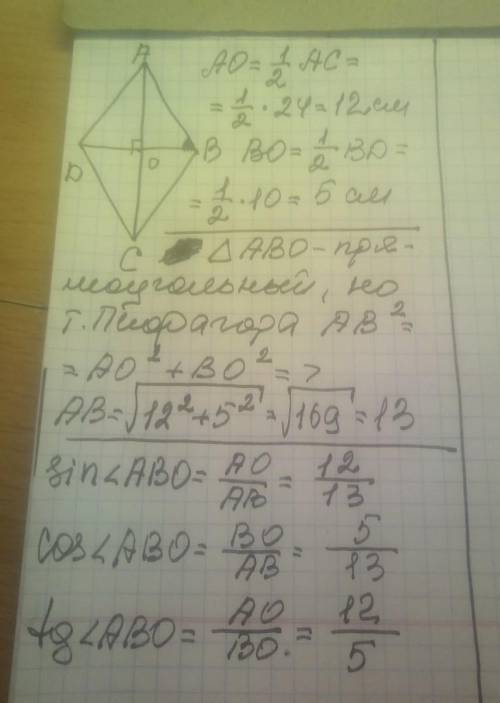 A
D
B
O
C
AO = 1/2 AC =
= 1/2 · 24 = 12 см
BO = 1/2 BD =
= 1/2 · 10 = 5 см
△ABO – пря-
моугольный, по
т. Пифагора AB² =
= AO² + BO² =>
AB = √(12² + 5²) = √169 = 13
sin∠ABO = AO/AB = 12/13
cos∠ABO = BO/AB = 5/13
tg∠ABO = AO/BO. = 12/5